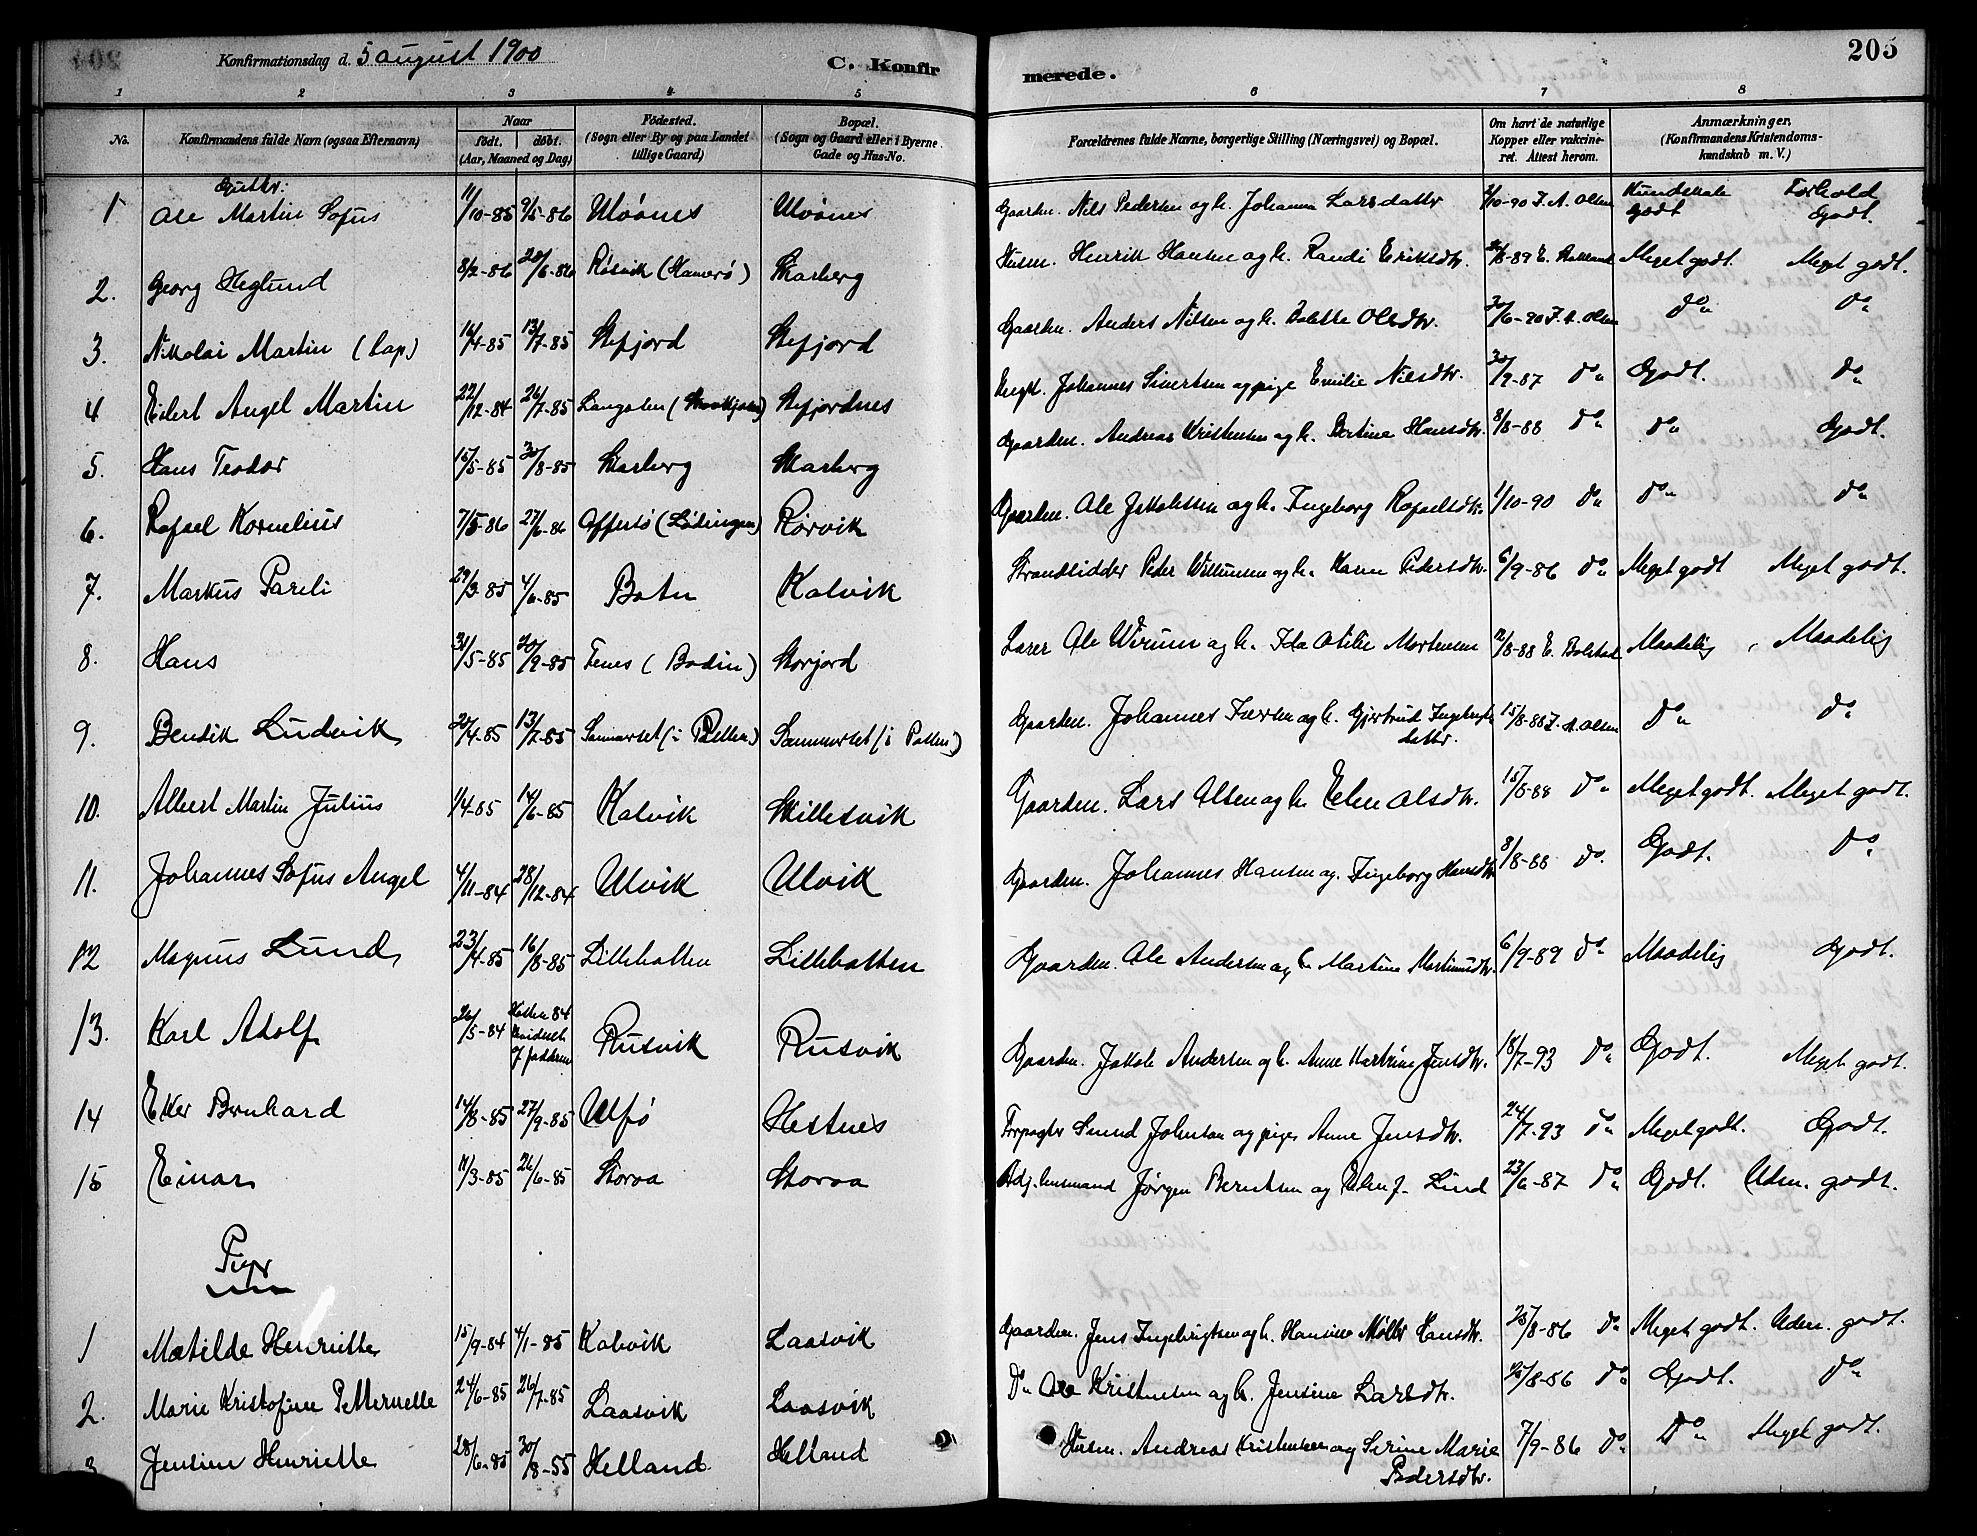 205
Konfirmationsdag d. 5 august 1900
C. Konfir merede.
1 2 3 4 5 6 7 8
No. Konfirmandens fulde Navn (ogsaa Efternavn) Naar født. døbt. (Aar, Maaned og Dag) Fødested. (Sogn eller By og paa Landet tillige Gaard) Bopæl. (Sogn og Gaard eller i Byerne Gade og Hus-No. Forældrenes fulde Navne, borgerlige Stilling (Næringsvei) og Bopæl. Om havt de naturlige Kopper eller vakcineret. Attest herom. Anmærkninger. (Konfirmandens Kristendomskundskab m. V.)
Gutter: Kundskab Forhold
1 Ole Martin Sofus 11/10-85 9/5-86 Ulvönes Ulvönes Gaardm. Nils Pedersen og h. Johanna Larsdatter /10-90 F. A. Olsen Godt Godt.
2. Georg Heglund 8/2-86 20/6-86 Røsvik (Hamerø) Skarberg Husm. Henrik Hansen og h. Randi Eriksdtr. /8-89 E. Meget godt. Meget godt.
3. Nikolai Martin (Lap) 16/4-85 13/7-85 Stefjord Stefjord Gaardm. Anders Nilsen og h. Olsdtr. 30/6-90 F. A. Olsen Do Do
4 Eilert Angel Martin 22/12-84 26/7-85 Stefjordnes Ungk. Johannes Sivertsen og pige Emilie Nilsdtr. 30/9-87 Do Godt. Do
5. Hans Teodor 15/5-85 30/8-85 Skarberg Skarberg Gaardm. Andreas Kristensen og h. Bertine Hansdtr. 8/8-88 Do Do Godt.
6. Rafael Kornelius 7/5-86 27/6-86 Offersø (Lødingen) Rørvik Gaardm. Ole Jakobsen og h. Ingeborg Rafaelsdtr. 1/10-90 Do Do Do
7. Markus Pareli 29/3-85 4/6-85 Botn Kalvik Strandsidder Peder Willumsen og h. Karen Pedersdtr. 6/9-86 Do Meget godt Meget godt.
8. Hans 31/5-85 20/9-85 Fenes (Bodin) Storjord Lærer Ole Wirum og h. Ida Otilie Mortensen 12/8-88 E. Bolstad Maadelig Maadelig
9. Bendik Ludvik 20/4-85 13/7-85 Sommerset (i Pollen) Sommerset (i Pollen) Gaardm. Johannes Iversen og h. Gjertrud Ingebrigts datter. 15/8-88 F. A. Olsen Do Do
10. Albert Martin Julius 1/4-85 14/6-85 Kalvik Skillesvik Gaardm. Lars Olsen og h. Elen Olsdtr. 15/8-88 Do Meget godt. Meget godt.
11. Johannes Sofus Angel 4/11-84 28/12-84 Ulvik Ulvik Gaardm. Johannes Hansen og. Ingeborg Hansdtr 8/8-88 Do. Godt. Do
12 Magnus Lund 23/4-85 16/8-85 Lillebotten Lillebotten Gaardm. Ole Andersen og h. Martine Martinusdtr. 6/9-89 Do. Maadelig Godt.
13. Karl Adolf 26/5-84 84 Rusvik Rusvik Gaardm. Jakob Andersen og h. Anne Katrine Jensdtr. 18/7-93 Do Godt. Meget godt.
14 Eker Bernhard 14/8-85 27/9-85 Ulfsø Hestnes Forpagter Johnsen og pige Anne Jensdtr. 24/7-93 Do Meget godt. Godt.
15 Einar 11/3-85 26/6-85 Storaa Storaa Adj. husmand Jørgen Berntsen og Elen f. Lind 23/6-87 Do Godt. Uden. godt.
Piger
1 Matilde Henriette 15/9-84 4/1-85 Kalvik Laasvik Gaardm. Jens Ingebrigtsen og h. Hansine Møller Hansdtr. 25/8-86 Do Meget godt. Uden. godt.
2. Marie Kristofine Petternelle 24/6-85 26/7-85 Laasvik Laasvik Do Ole Kristensen og h. Jensine Larsdtr. /8-86 Do Godt. Do
3 Jensine Henriette 28/6-85 30/8-55 Helland Helland Husm. Andreas Kristensen og Serine Marie Pedersdtr. 7/9-86 Do Do Meget godt.